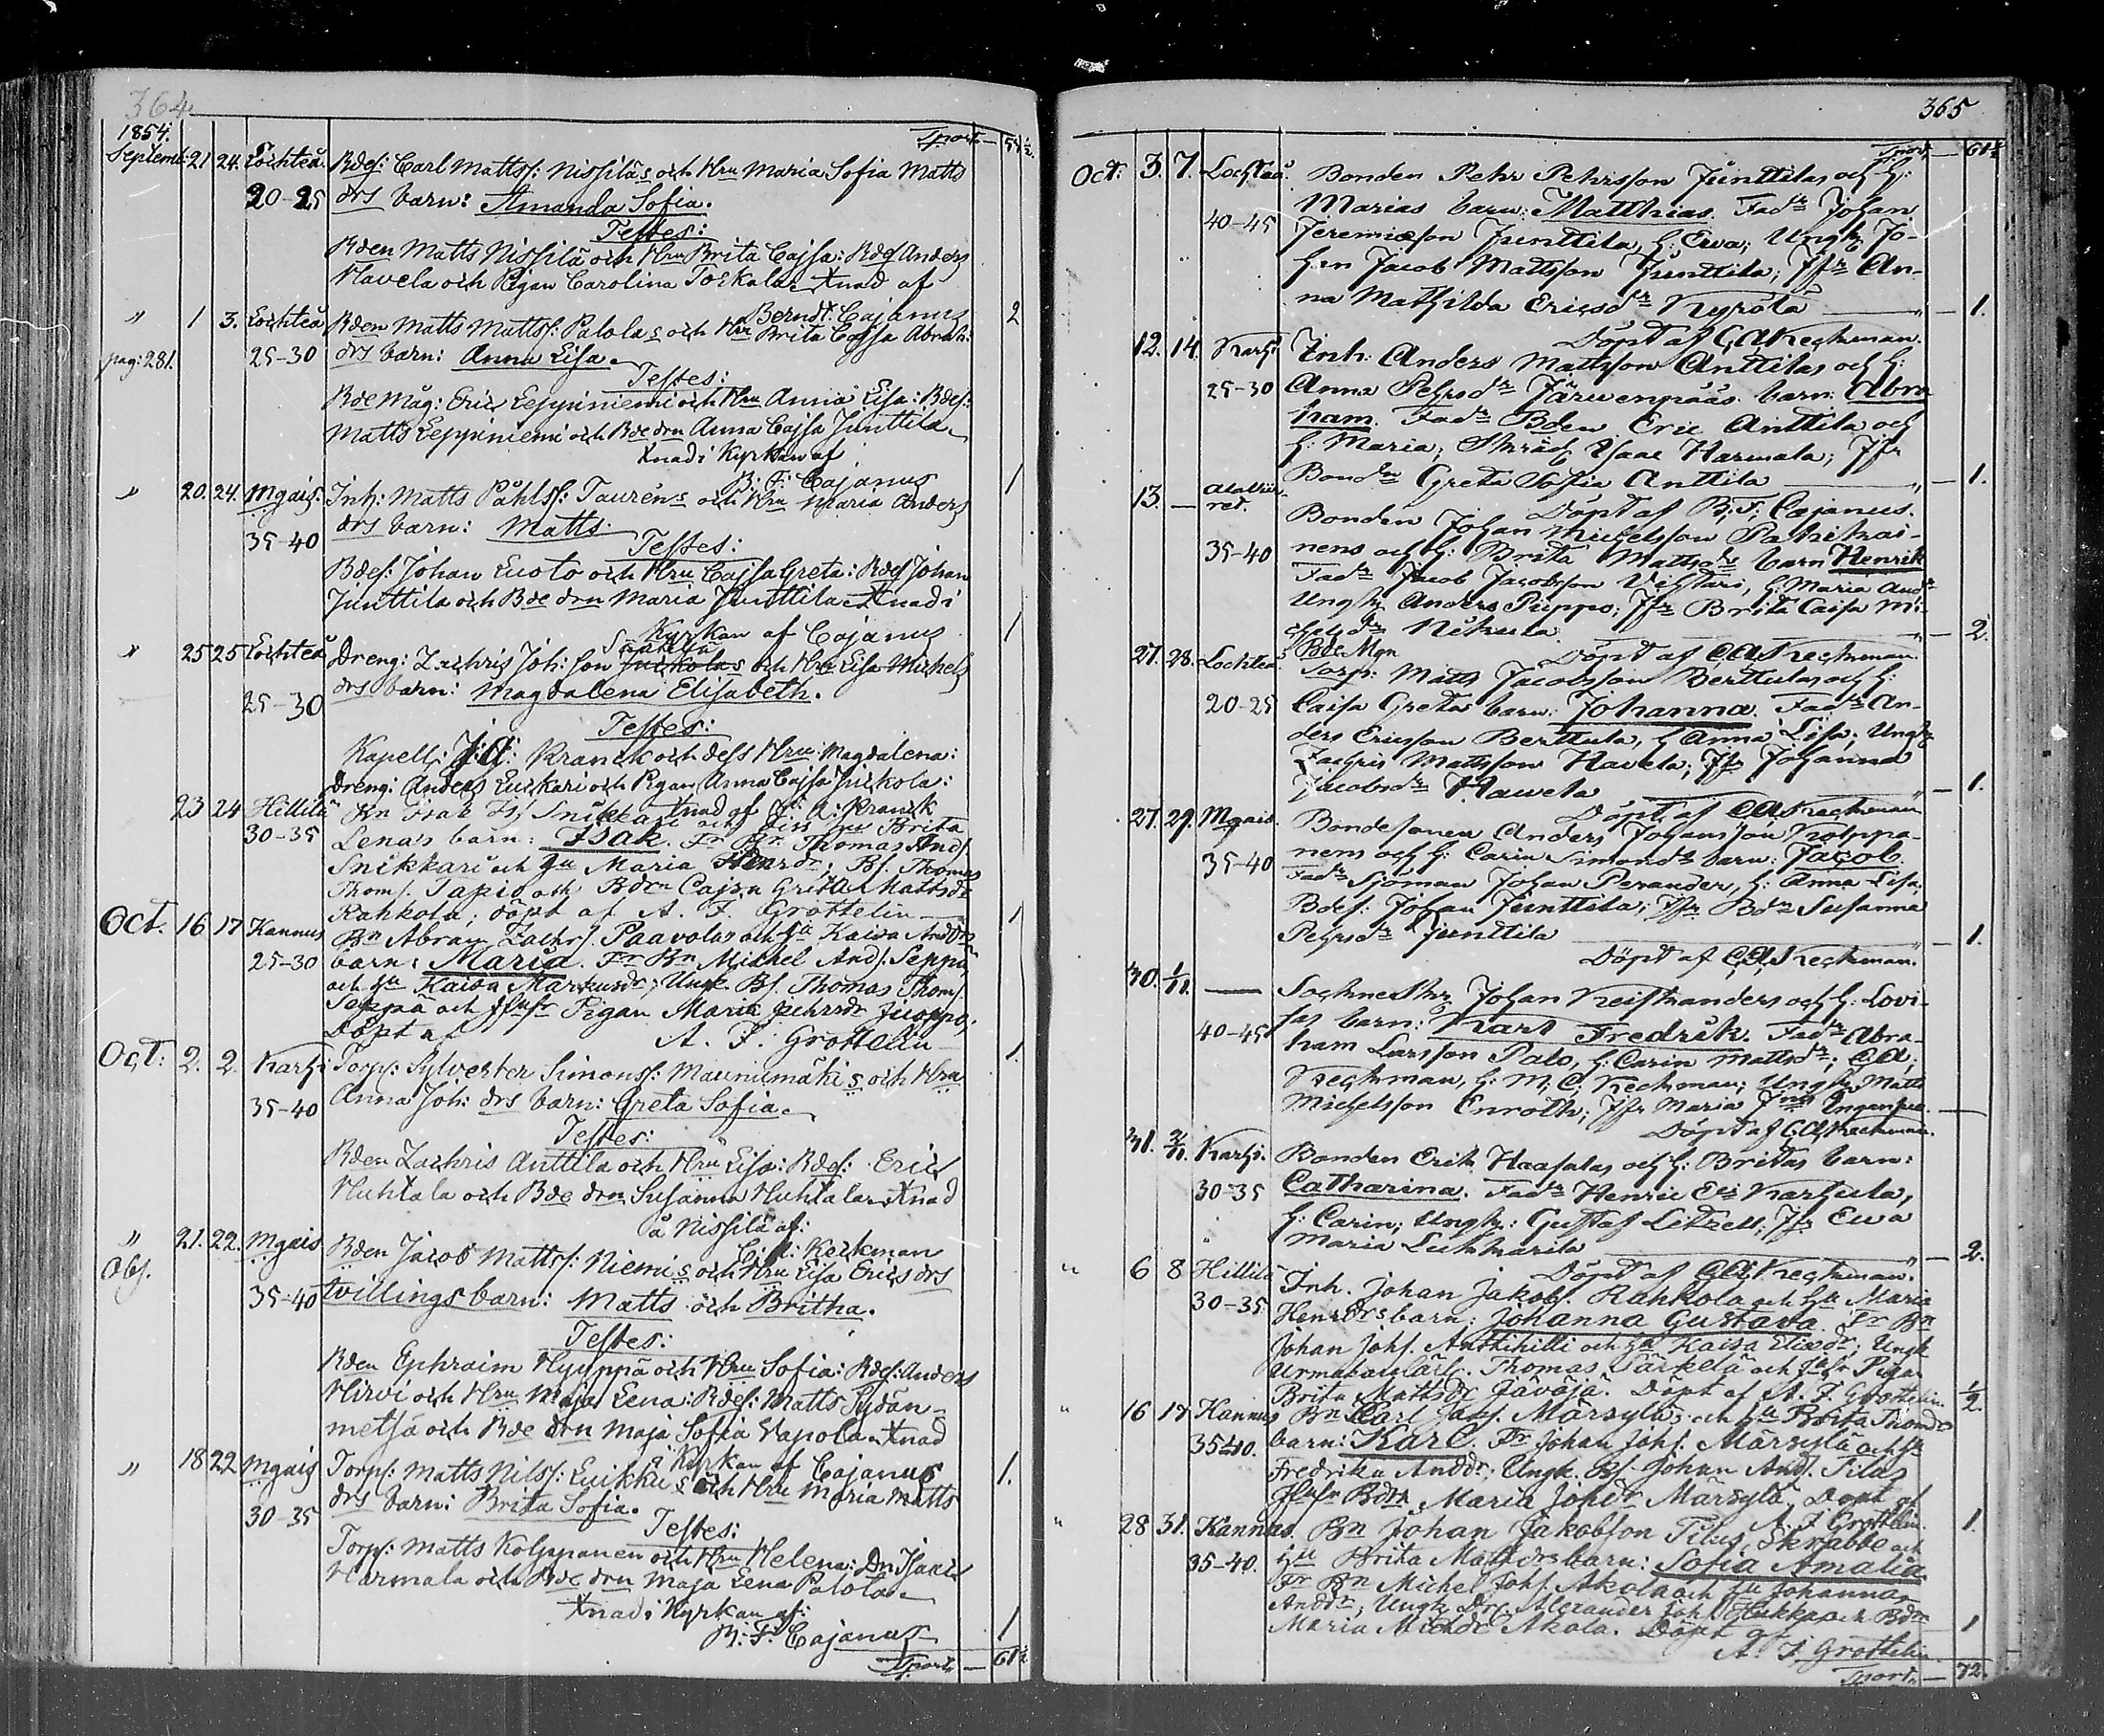 364
1854. Sport. — 51½
Septemb: 21 24. Lochteå. Bdes: Carl Mattss: Nissiläs och Hru Maria Sofia Matts
20-25 drs barn: Amanda Sofia.
Testes:
Bden Matts Nissilä och Hru Brita Cajsa: Bdes Anders
Havela och Pigan Carolina Torkola. Xnad af
Berndt Cajanus 2
" 1 3. Lochteå Bden Matts Mattss: Palolas och Hru Brita Cajsa Abrah:
pag: 281. 25-30 drs barn: Anna Lisa.
Testes:
Bde Måg: Eric Leppiniemi och Hru Anna Lisa: Bdes:
Matts Leppiniemi och Bde drn Anna Cajsa Junttila.
Xnad i Kyrkan af
B: F: Cajanus 1
" 20. 24. Mgais: Inh: Matts Påhlss: Tauréns och Hru Maria Anders
35-40 drs barn: Matts.
Testes:
Bdes: Johan Luoto och Hru Cajsa Greta: Bdes Johan
Junttila och Bde drn Maria Junttila. Xnad i
Kyrkan af Cajanus 1
" 25 25 Lochteå Dreng: Zachris Joh: son Juckolas och Hru Lisa Michels
25-30 drs barn: Magdalena Elisabeth.
Testes:
Kapell: J: A: Kranck och dess Hru: Magdalena:
Dreng: Anders Luckari och Pigan Anna Cajsa Juckola:
Xnad af J: A: Kranck
23 24 Hillilä Bn Isak Is. Snikkari och Hru Brita
30-35 Lenas barn: Isak. Fr Bn Thomas And.
Snikkari och Hu Maria Henrdr; Bs. Thomas
Thoms. Tapio och Bdrn Cajsa Greta Mattsdr
Rahkola; döpt af A. F. Grottelin 1
Oct. 16 17 Kannus Bn Abram Zachrs. Paavolas och Hu Kaisa Anddrs
25-30 barn: Maria. Fr Bn Michel Ands. Seppä
och Hu Kaisa Markusdr; Ungk Bs. Thomas Thoms.
Seppä och Jfr Pigan Maria Pehrsdr Juoppo;
Döpt af A. F. Grottelin 1.
Oct: 2. 2. Karhi Torp: Sylvester Simonss: Maunumäkis och Hru
35-40 Anna Joh: drs barn: Greta Sofia.
Testes:
Bden Zachris Anttila och Hru Lisa: Bdes: Eric
Huhtala och Bde drn Susanna Huhtala. Xnad
å Nissilä af:
C: A: Keckman
" 21. 22. Mgais Bden Jacob Mattss: Niemis och Hru Lisa Erics drs
Obs. 35-40 tvillings barn: Matts och Britha.
Testes:
Bden Ephraim Hyyppä och Hru Sofia: Bdes: Anders
Hirvi och Hru Maja Lena: Bdes: Matts Sydän-
metsä och Bde drn Maja Sofia Vapola. Xnad
i Kyrkan af Cajanus 1.
" 18 22 Mgais Torp: Matts Nilss: Luikkus och Hru Maria Matts
30-35 drs barn: Brita Sofia.
Testes:
Torp: Matts Kolppanen och Hru Helena: Dn Isack
Harmala och Bde drn Maja Lena Palola.
Xnad i Kyrkan af:
B: F: Cajanus 1
Sport. — 61½
365
Sport. — 61½
Oct: 3. 7. Lochteå. Bonden Pehr Pehrsson Junttilas och h:
40-45 Marias barn: Matthias. Faddr Johan
Jeremiæson Junttila, h: Ewa; Ungk Jo-
han Jacob Mattsson Junttila; Jfr An-
na Mathilda Ericsdr Kyrölä — 1.
Döpt af C A Keckman.
12. 14. Karhi Inh: Anders Mattsson Anttilas och h:
25-30 Anna Pehrsdr Järwenpääs barn: Abra
ham. Faddr Bden Eric Anttila och
h: Maria; Skräd. Isaac Harmala; Jfr
Bondn Greta Sofia Anttila — 1.
Döpt af B. F. Cajanus.
13. — Alaviirret. Bonden Johan Michelsson Pahikai-
35-40 nens och h: Brita Mattsdrs barn Henrik
Faddr Jacob Jacobsson Vestari, h: Maria Andr
Ungk Anders Puppo; Jfr Brita Caisa Mi-
chelsdr Nikula — 2.
Döpt af C A Keckman
27. 28. Lochteå Bde Mgn
Torp: Matts Jacobsson Berttulas och h:
20-25 Caisa Gretas barn: Johanna. Faddr An-
ders Ericsson Berttula, h: Anna Lisa; Ungk
Zachris Mattsson Haweta; Jfr Johanna
Jacobsdr Haweta — 1.
Döpt af C A Keckman
27. 29. Mgais. Bondesonen Anders Johansson Kolppa-
35-40 nens och h: Carin Simonsdrs barn: Jacob.
Faddr Sjöman Johan Perander, h: Anna Lisa;
Bdes: Johan Junttila; Jfr Bdn Susanna
Pehrsdr Junttila — 1.
Döpt af C A Keckman.
30. 1/11. — Sochne Skr. Johan Keisthanders och h: Lovi-
40-45 sas barn: Karl Fredrik. Faddr Abra-
ham Larsson Palo, h: Carin Mattsdr; C A
Keckman, h: M: C: Keckman; Ungk Matts
Michelsson Enroth; Jfr Maria —
Döpt af C A Keckman.
31. 2/11. Karhi. Bonden Erik Haasalas och h: Britas barn:
30-35 Catharina. Faddr Henric Karhula,
h: Carin; Ungk: Gustaf Litzell; Jfr Ewa
Maria Luhmarila — 2.
Döpt af C A Keckman.
" 6 8 Hillilä Inh. Johan Jakobs. Rahkola och Hu Maria
30-35 Henrdrs barn: Johanna Gustava. Fr Bn
Johan Johs. Anttihilli och Hu Kaisa Eliædr; Ungk
Thomas Särkelä och Jfr Pigan
Brita Mattsdr Jäväjä. Döpt af A. F. Grottelin. ½.
" 16 17 Kannus Bn Carl Jaks. Märsyläs och Hu Brita
35-40. barn: Karl. Fr Johan Johs. Märsylä och Hu
Fredrika Anddr; Ungk. Bs. Johan Ands. Tilus
Jfr Bdrn Maria Johdr Märsylä. Döpt af
A. F. Grottelin. 1.
" 28 31. Kannus. Bn Johan Jakobson Tilus, Skrabbe och
35-40. Hu Brita Mattsdrs barn: Sofia Amalia.
Fr Bn Michel Johs. Akola och Hu Johanna
Anddr; Ungk Drg. Alexander Johs. och Bdrn
Maria Michdr Akola. Döpt af 1
A. F. Grottelin
Sport. — 72.